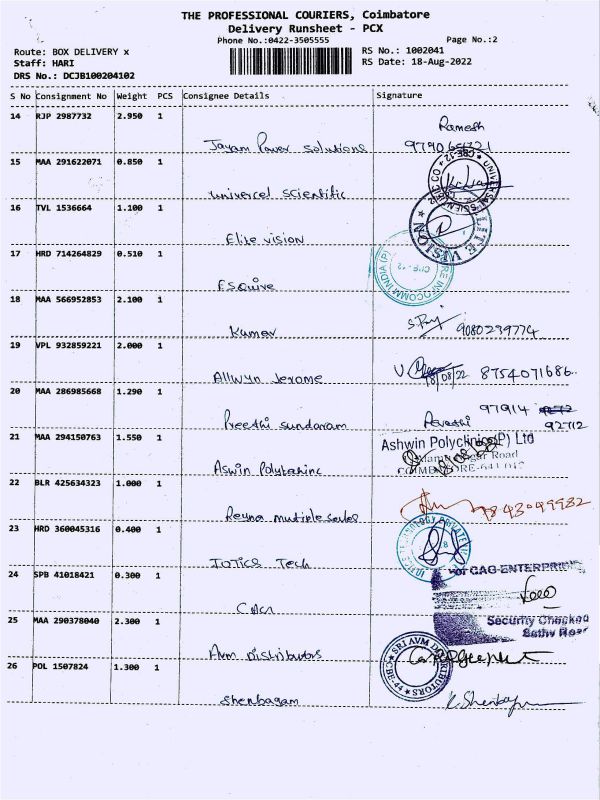 THE PROFESSIONAL COURIERS, Coimbatore
Delivery Runsheet - PCX
Phone No.:0422-3505555 Page No.:2
Route: BOX DELIVERY x RS No.: 1002041
Staff: HARI RS Date: 18-Aug-2022
DRS No.: DCJB100204102
S No Consignment No Weight PCS Consignee Details Signature
14 RJP 2987732 2.950 1
Ramesh
Jayam Power Solutions
15 MAA 291622071 0.850 1
Univercel Scientific
16 TVL 1536664 1.100 1
Elite vision
TE VISION
17 HRD 714264829 0.510 1
Esquire
RE INFOCOMM INDIA (P)
CBE-12
18 MAA 566952853 2.100 1
Kumar 9080239774
19 VPL 932859221 2.000 1
Allwyn Jerome 18/08/22 8754071686
20 MAA 286985668 1.290 1
97914
Preethi Sundaram 92712
21 MAA 294150763 1.550 1
Ashwin Polyclinic(P) Ltd
Road
COIMBATORE-641 012
22 BLR 425634323 1.000 1
Reyna 9843049982
23 HRD 360045316 0.400 1
IOTICS Tech
24 SPB 41018421 0.300 1
For CAG ENTERPRI
25 MAA 290378040 2.300 1
Security Checked
Sathy Road
Avm Distributors
SRI AVM DISTRIBUTORS
CBE-44
26 POL 1507824 1.300 1
Shenbagam